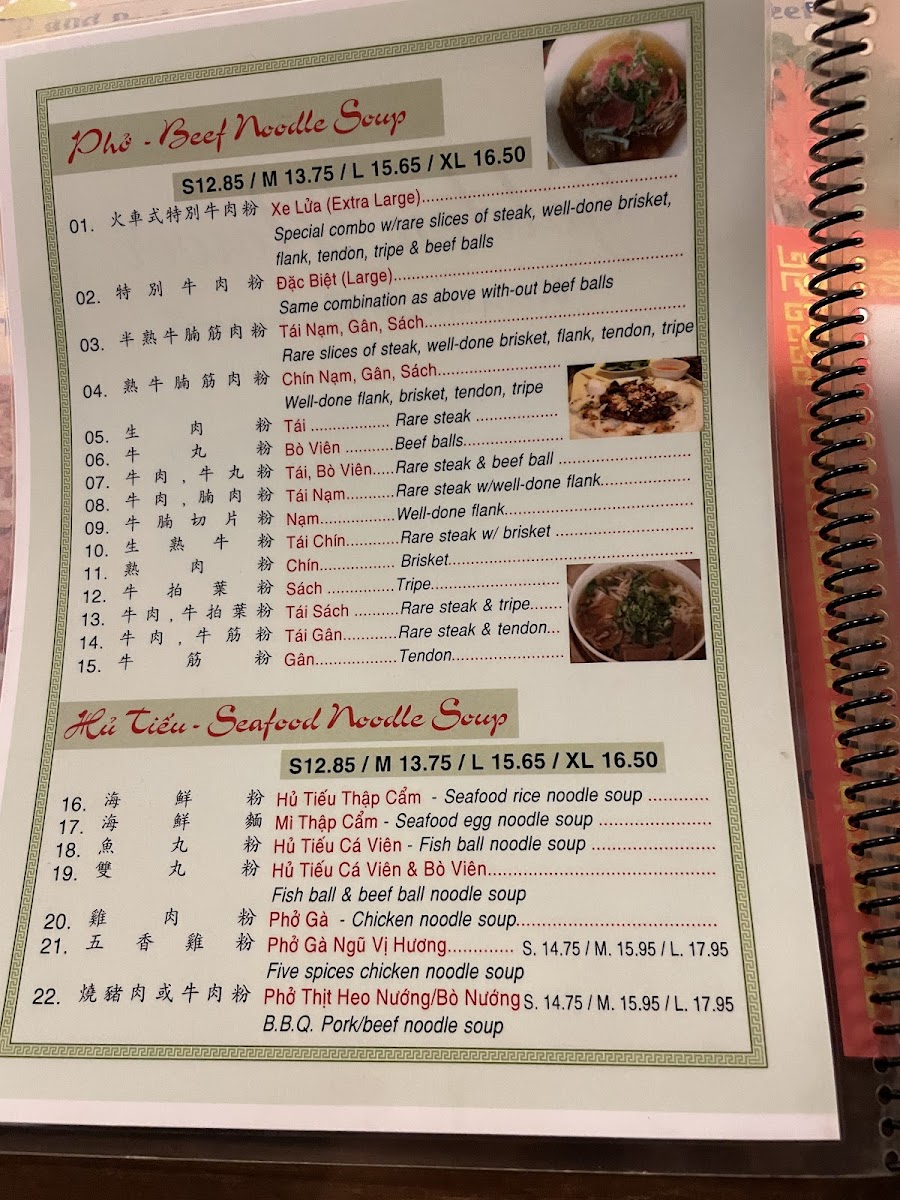 Phở - Beef Noodle Soup
S12.85 / M 13.75 / L 15.65 / XL 16.50
01. 火車式特別牛肉粉 Xe Lửa (Extra Large)
Special combo w/rare slices of steak, well-done brisket,
flank, tendon, tripe & beef balls
02. 特別牛肉粉 Đặc Biệt (Large)
Same combination as above with-out beef balls
03. 半熟牛腩筋肉粉 Tái Nạm, Gân, Sách
Rare slices of steak, well-done brisket, flank, tendon, tripe
04. 熟牛腩筋肉粉 Chín Nạm, Gân, Sách
Well-done flank, brisket, tendon, tripe
05. 生肉粉 Tái Rare steak
06. 牛丸粉 Bò Viên Beef balls
07. 牛肉,牛丸粉 Tái, Bò Viên Rare steak & beef ball
08. 牛肉,腩肉粉 Tái Nạm Rare steak w/well-done flank
09. 牛腩切片粉 Nạm Well-done flank
10. 生熟牛粉 Tái Chín Rare steak w/ brisket
11. 熟肉粉 Chín Brisket
12. 牛拍葉粉 Sách Tripe
13. 牛肉,牛拍葉粉 Tái Sách Rare steak & tripe
14. 牛肉,牛筋粉 Tái Gân Rare steak & tendon
15. 牛筋粉 Gân Tendon
Hủ Tiếu - Seafood Noodle Soup
S12.85 / M 13.75 / L 15.65 / XL 16.50
16. 海鮮粉 Hủ Tiếu Thập Cẩm - Seafood rice noodle soup
17. 海鮮麵 Mì Thập Cẩm - Seafood egg noodle soup
18. 魚丸粉 Hủ Tiếu Cá Viên - Fish ball noodle soup
19. 雙丸粉 Hủ Tiếu Cá Viên & Bò Viên
Fish ball & beef ball noodle soup
20. 雞肉粉 Phở Gà - Chicken noodle soup
21. 五香雞粉 Phở Gà Ngũ Vị Hương S. 14.75 / M. 15.95 / L. 17.95
Five spices chicken noodle soup
22. 燒豬肉或牛肉粉 Phở Thịt Heo Nướng/Bò Nướng S. 14.75 / M. 15.95 / L. 17.95
B.B.Q. Pork/beef noodle soup